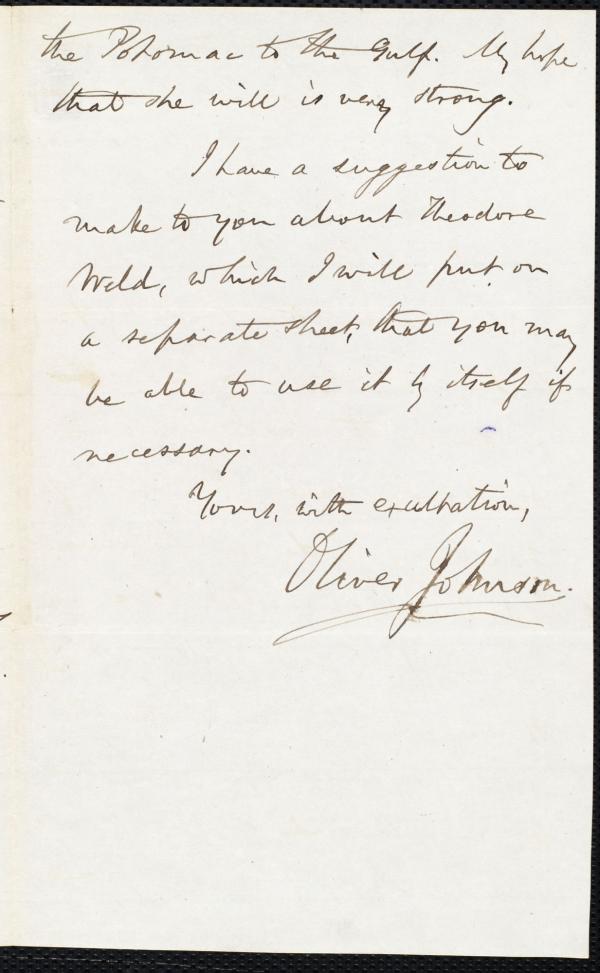 the Potomac to the Gulf. My hope
that she will is very strong.
I have a suggestion to
make to you about Theodore
Weld, which I will put on
a separate sheet, that you may
be able to use it by itself if
necessary.
Yours, with exultation,
Oliver Johnson.